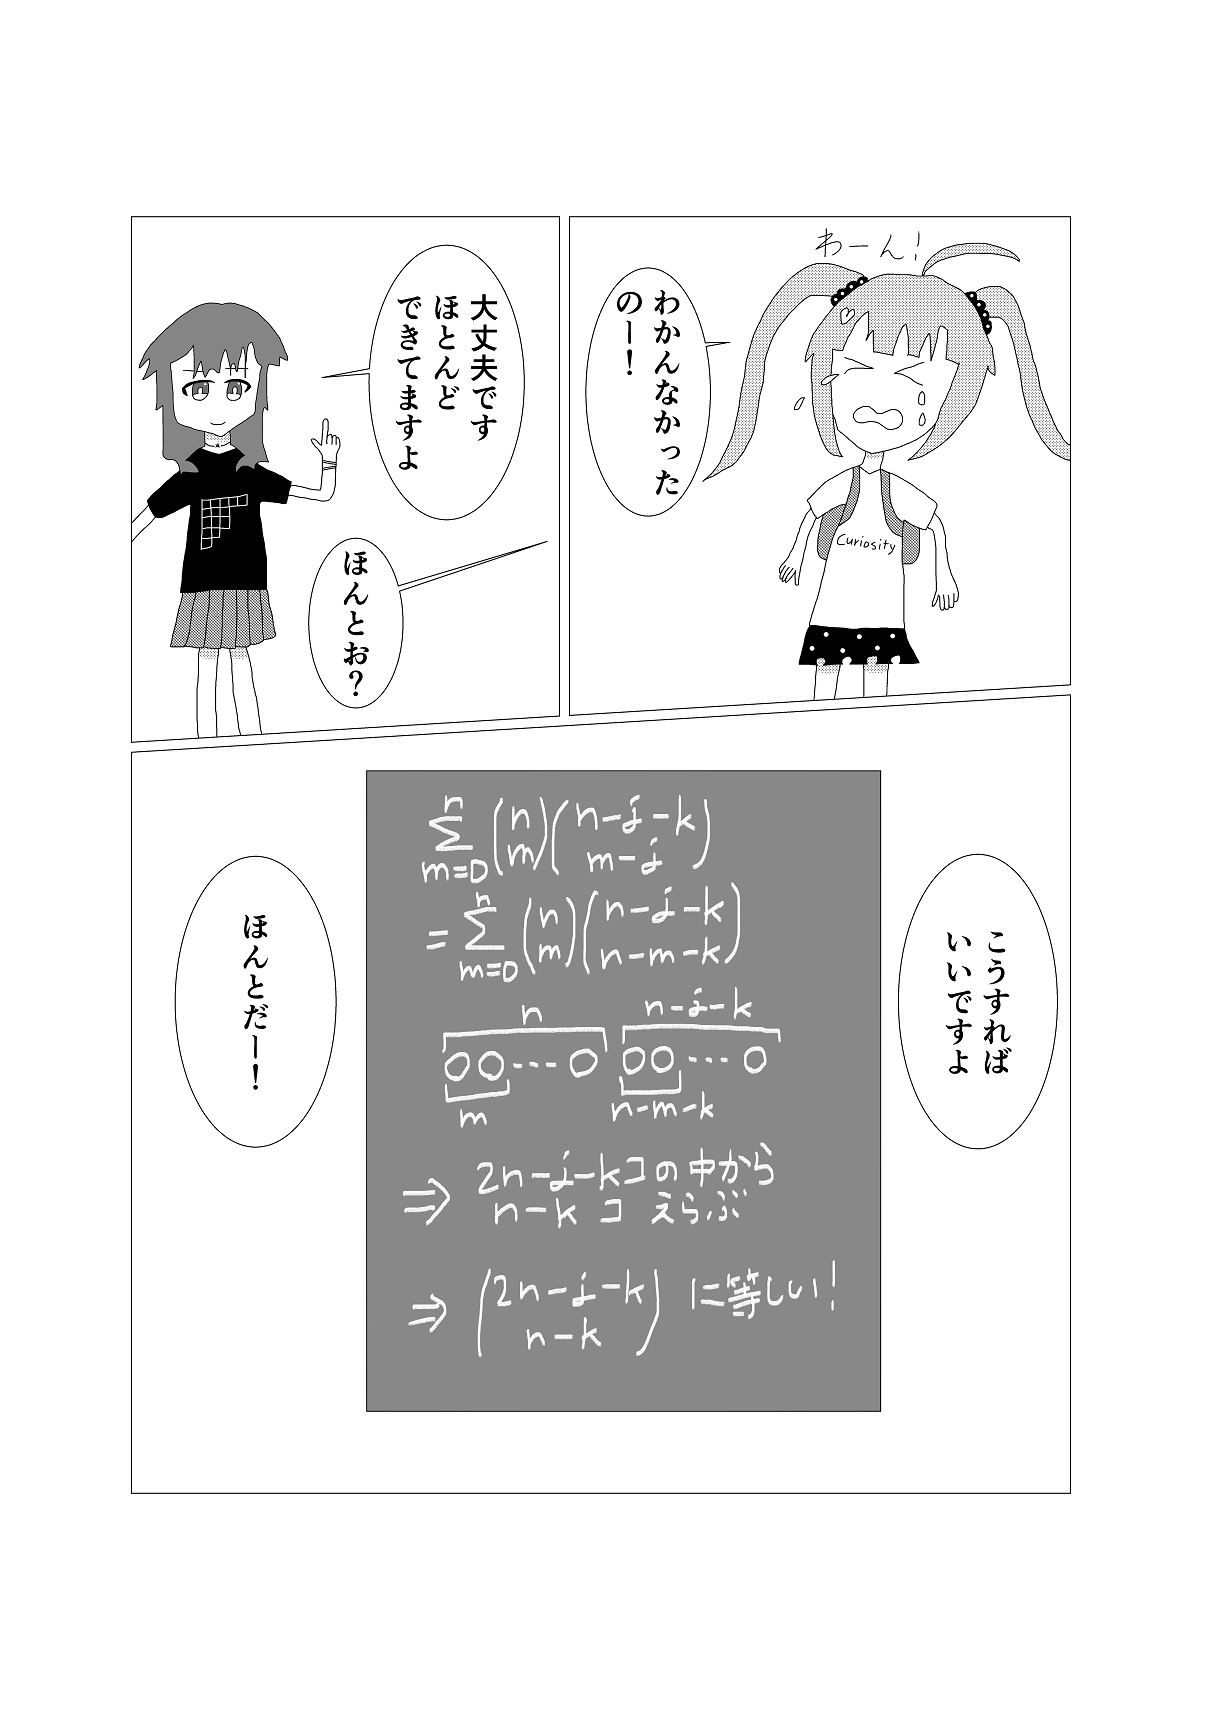 わーん！
わかんなかった
のー！
Curiosity
大丈夫です
ほとんど
できてますよ
ほんとお？
こうすれば
いいですよ
n
∑ (n m)(n-j-k m-j)
m=0
n
= ∑ (n m)(n-j-k n-m-k)
m=0
n n-j-k
○○…○ ○○…○
m n-m-k
⇒ 2n-j-kコの中から
n-kコ えらぶ
⇒ (2n-j-k n-k) に等しい！
ほんとだー！